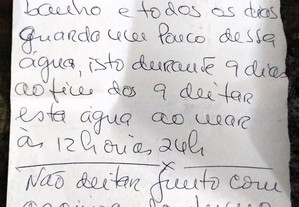 banho e todos os dias
guarda um pouco dessa
água, isto durante 9 dias
ao fim dos 9 deitar
esta água ao mar
às 12h ou às 24h
x
Não deitar junto com